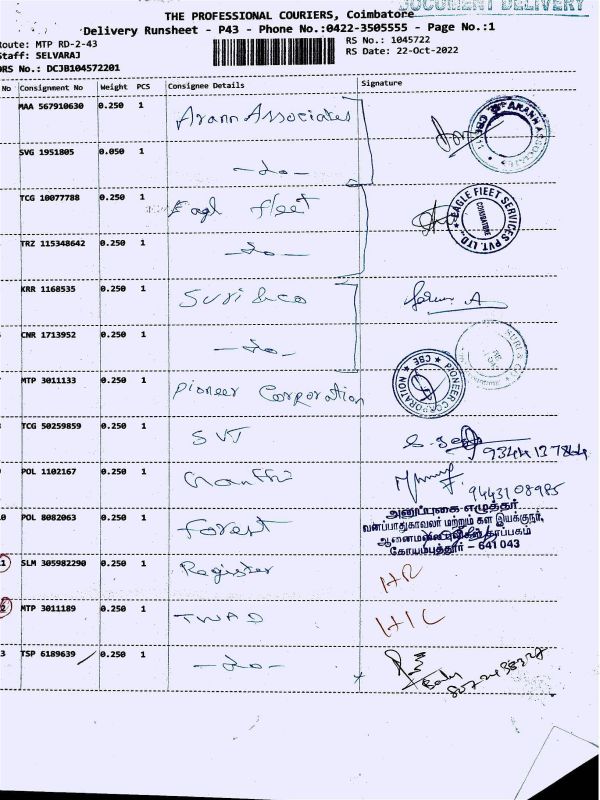 DOCUMENT DELIVERY
THE PROFESSIONAL COURIERS, Coimbatore
Delivery Runsheet - P43 - Phone No.:0422-3505555 - Page No.:1
Route: MTP RD-2-43 RS No.: 1045722
Staff: SELVARAJ RS Date: 22-Oct-2022
DRS No.: DCJB104572201
No Consignment No Weight PCS Consignee Details Signature
MAA 567910630 0.250 1 Arann Associates
ARANN ASSOCIATES CBE
SVG 1951805 0.050 1 -do-
TCG 10077788 0.250 1 Eagl fleet
EAGLE FLEET SERVICES PVT. LTD. COIMBATORE
TRZ 115348642 0.250 1 -do-
KRR 1168535 0.250 1 Suri & co
CNR 1713952 0.250 1 -do-
SURI & CO
MTP 3011133 0.250 1 Pioneer Corporation
PIONEER CORPORATION CBE
TCG 50259859 0.250 1 SVT
POL 1102167 0.250 1
POL 8082063 0.250 1 forest
அனுப்புகை எழுத்தர்
வனப்பாதுகாவலர் மற்றும் கள இயக்குநர்,
ஆனைமலை புலிகள் காப்பகம்
கோயம்புத்தூர் - 641 043
11 SLM 305982290 0.250 1 Register
12 MTP 3011189 0.250 1 TWAD
3 TSP 6189639 0.250 1 -do-